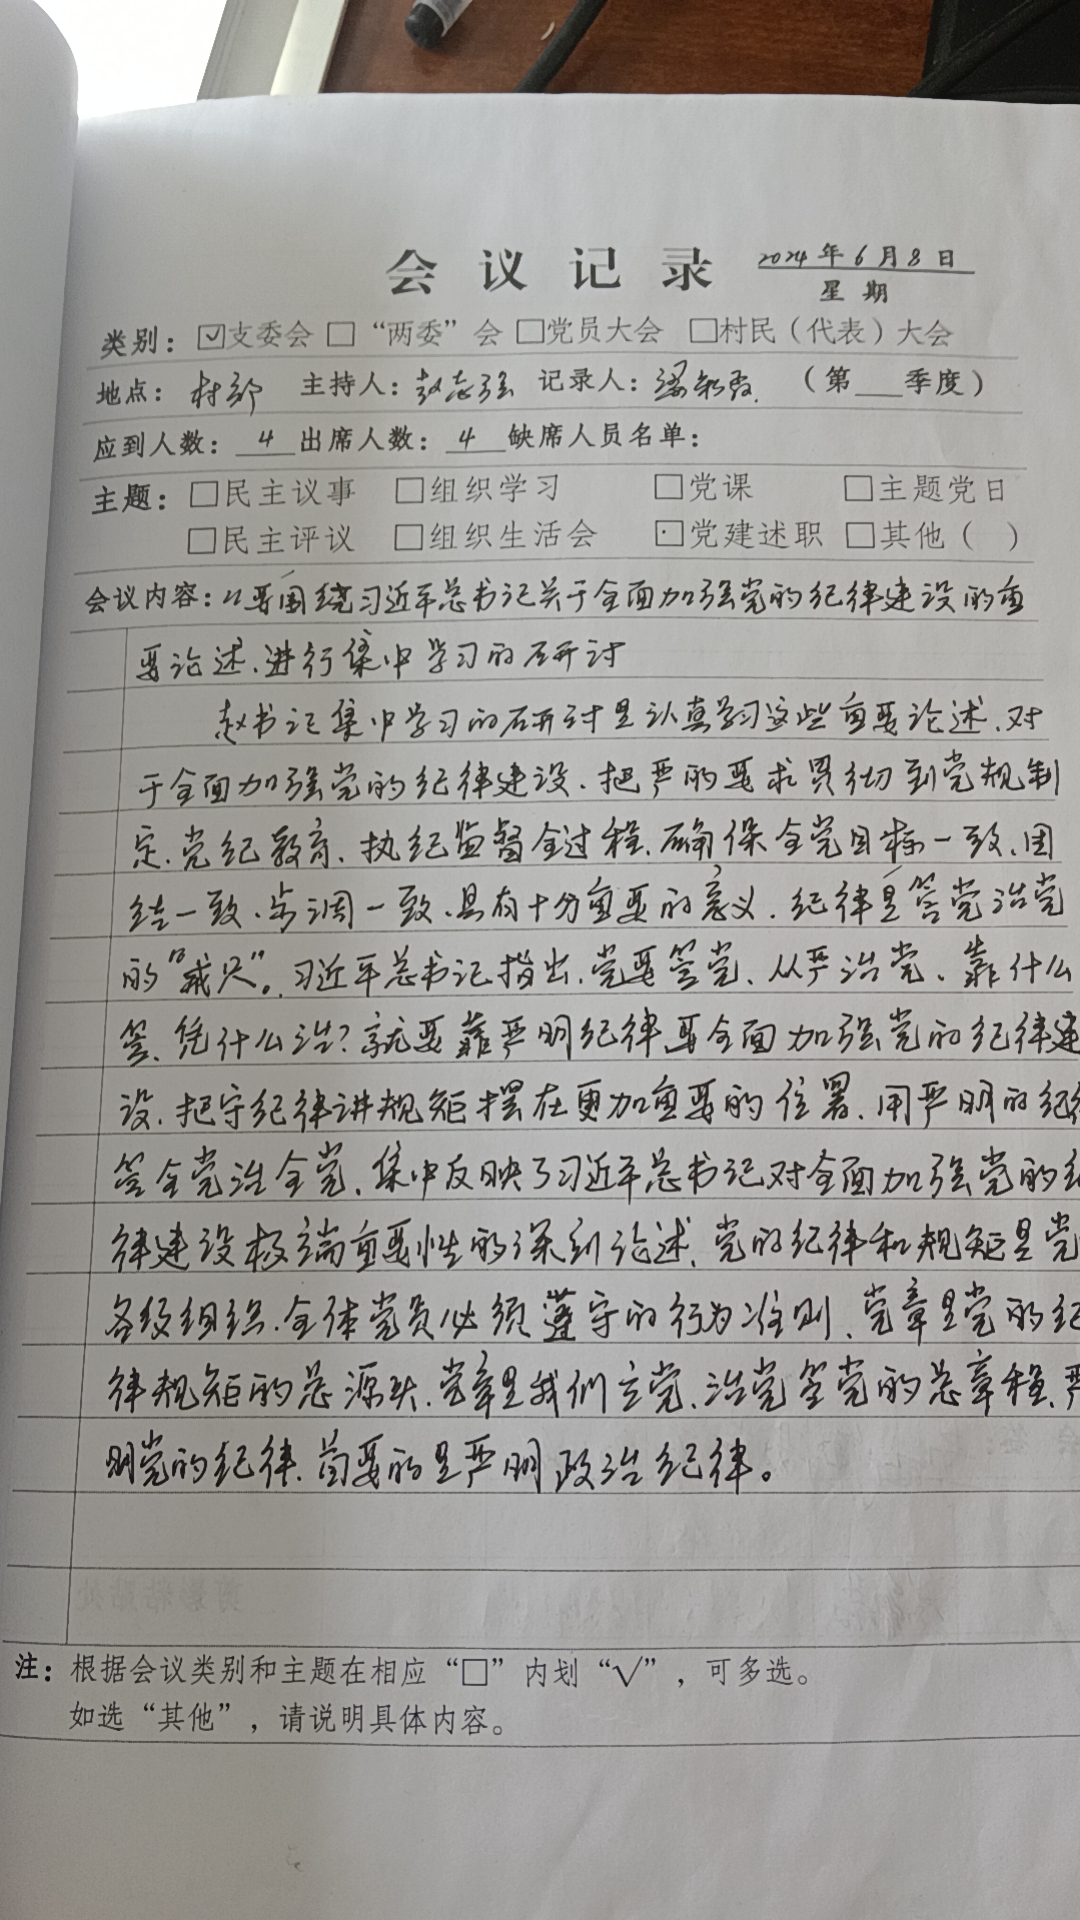 会议记录 2024年6月8日
星期
类别：☑支委会 □“两委”会 □党员大会 □村民（代表）大会
地点：村部 主持人：赵志强 记录人：梁 （第 季度）
应到人数：4 出席人数：4 缺席人员名单：
主题：□民主议事 □组织学习 □党课 □主题党日
□民主评议 □组织生活会 □党建述职 □其他（ ）
会议内容：以要围绕习近平总书记关于全面加强党的纪律建设的重
要论述、进行集中学习的研讨
赵书记集中学习的研讨是认真学习这些重要论述、对
于全面加强党的纪律建设、把严的要求贯彻到党规制
定、党纪教育、执纪监督全过程、确保全党目标一致、团
结一致、步调一致、具有十分重要的意义．纪律是管党治党
的“戒尺”。习近平总书记指出、党要管党、从严治党、靠什么
管、凭什么治？就要靠严明纪律要全面加强党的纪律建
设、把守纪律讲规矩摆在更加重要的位置、用严明的纪律
管全党治全党、集中反映了习近平总书记对全面加强党的纪
律建设极端重要性的深刻论述、党的纪律和规矩是党
各级组织、全体党员必须遵守的行为准则、党章是党的纪
律规矩的总源头、党章是我们立党、治党管党的总章程、严
明党的纪律、首要的是严明政治纪律。
注：根据会议类别和主题在相应“□”内划“√”，可多选。
如选“其他”，请说明具体内容。